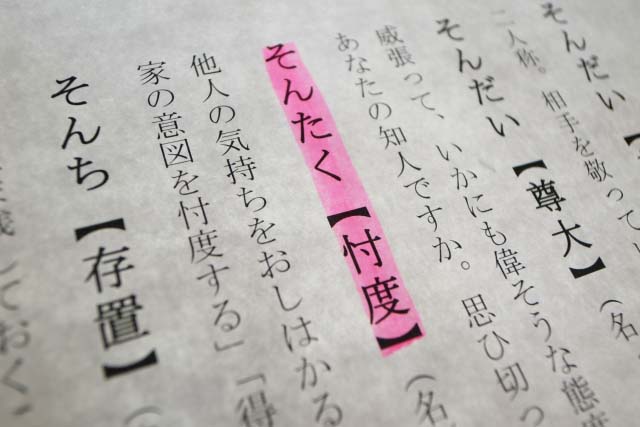 そんだい【
二人称。相手を敬って
そんだい【尊大】（名
威張って、いかにも偉そうな態度
あなたの知人ですか。思ひ切っ
そんたく【忖度】（名
他人の気持ちをおしはかる
家の意図を忖度する」「得
そんち【存置】（
しておくこ